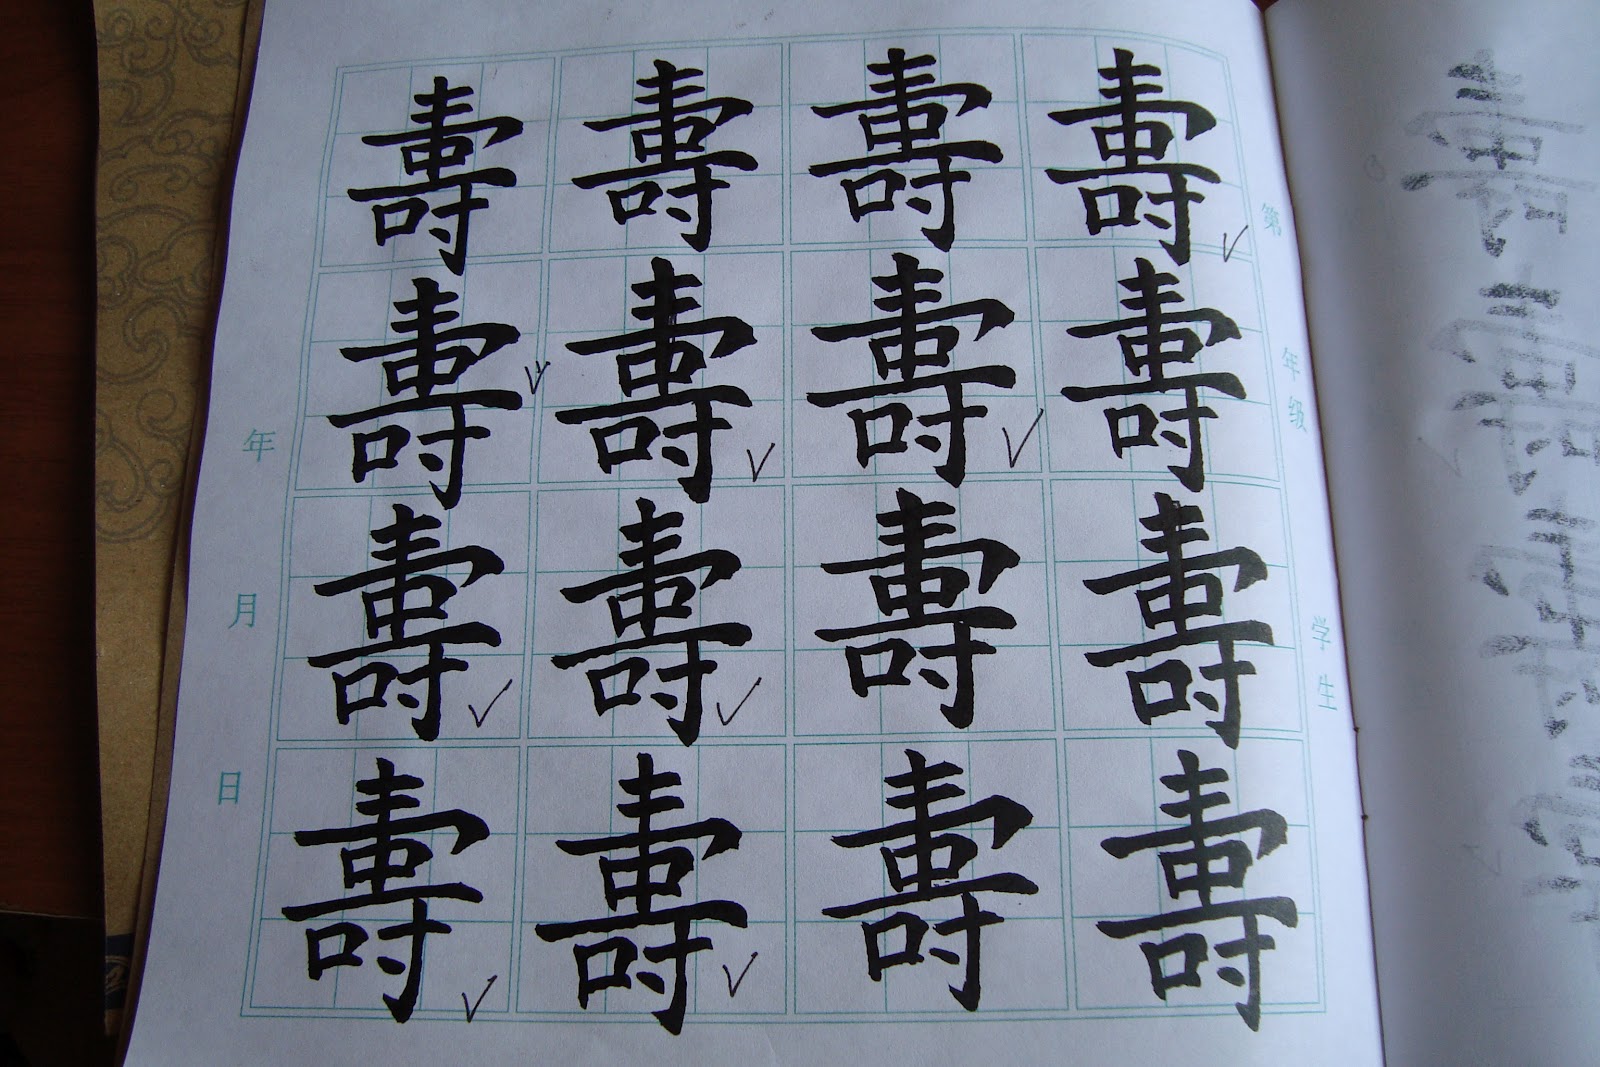 壽 壽 壽 壽
壽 壽 壽 壽
壽 壽 壽 壽
壽 壽 壽 壽
年 月 日
第 年级 学生